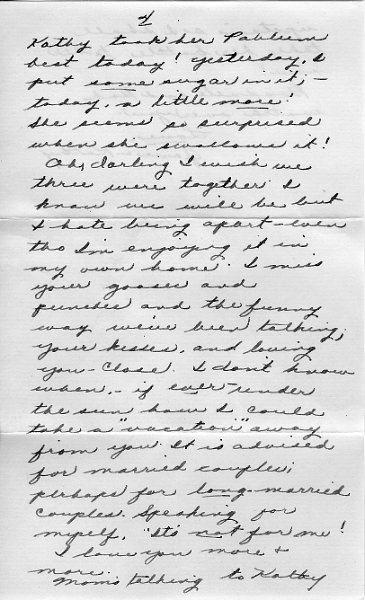 4
Kathy took her Pablum
best today! Yesterday, I
put some sugar in it, -
today, a little more!
She seems so surprised
when she swallows it!
Oh, darling I wish we
three were together. I
know we will be but
I hate being apart - even
tho I'm enjoying it in
my own home. I miss
your gooses and
punches and the funny
way we've been talking,
your kisses, and loving
you - close. I don't know
when, - if ever - under
the sun how I could
take a "vacation" away
from you. It is advised
for married couples;
perhaps for long-married
couples. Speaking for
myself, "It's not for me!
I love you more &
more.
Mom's talking to Kathy